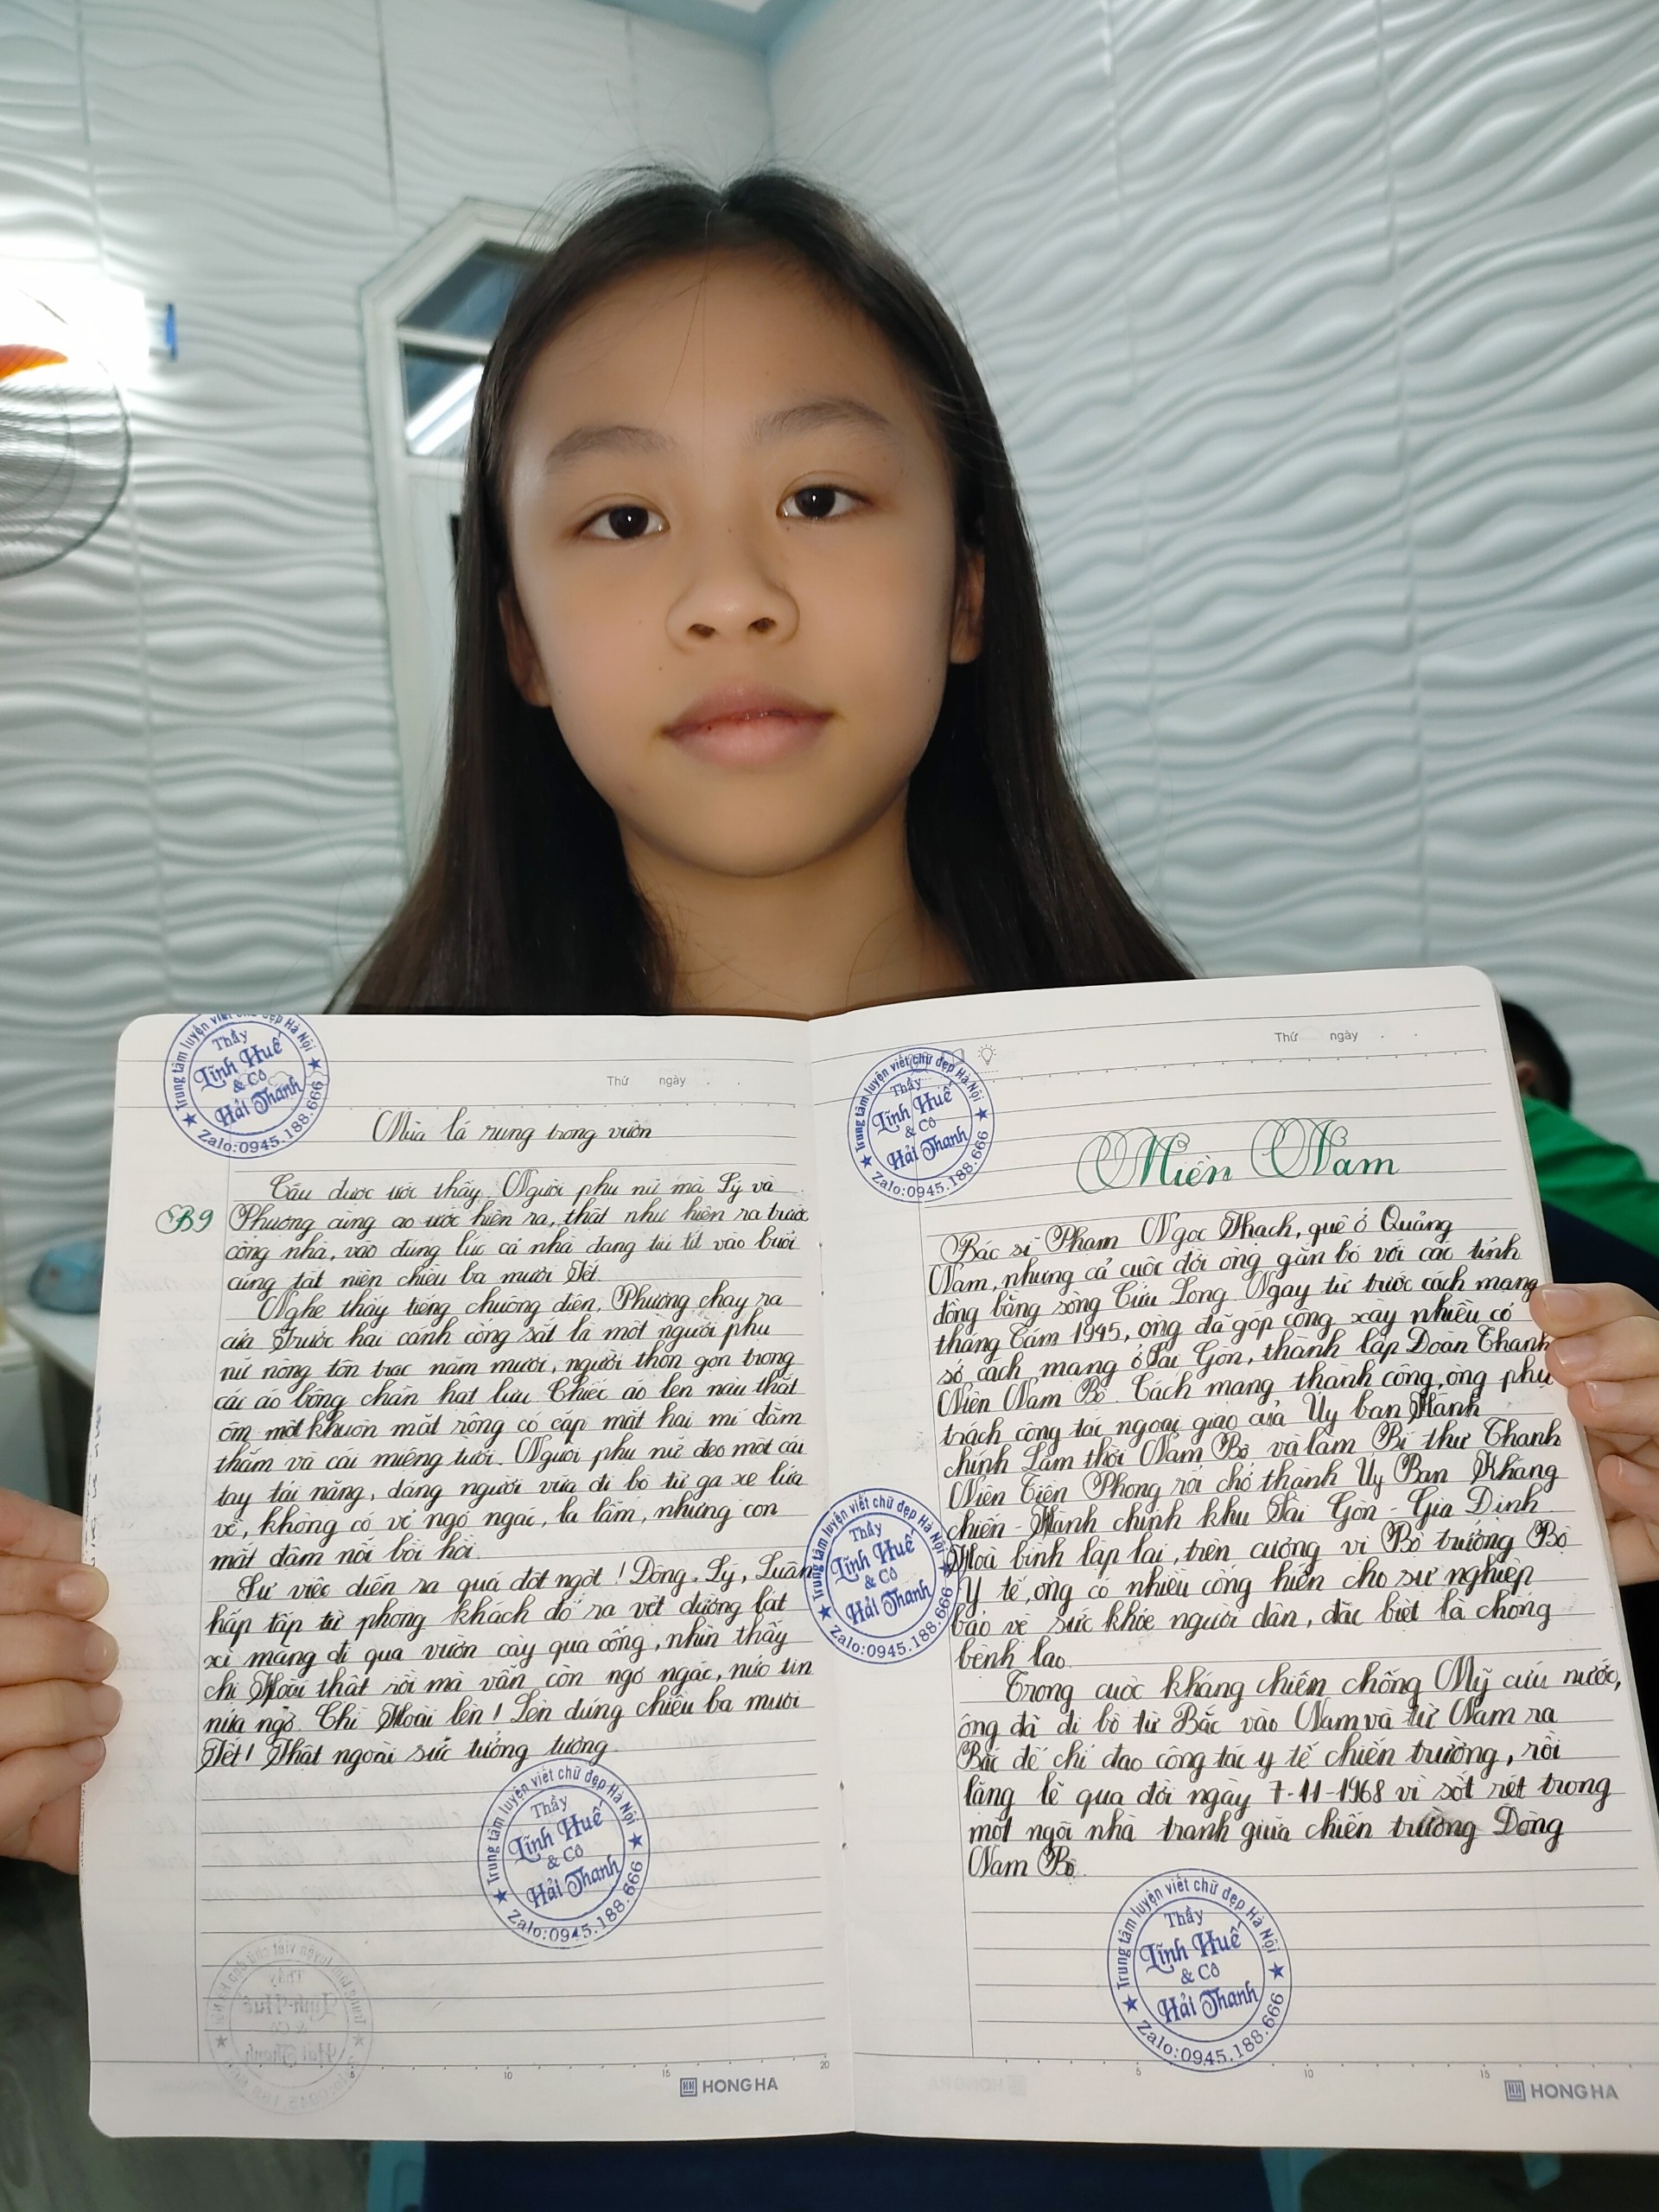 Trung tâm luyện viết chữ đẹp Hà Nội
Thầy
Lĩnh Huế
& Cô
Hải Thanh
Zalo:0945.188.666
Thứ ngày
Mùa lá rụng trong vườn
B9
Cầu được ước thấy. Người phụ nữ mà Lý và
Phương cùng ao ước hiện ra, thật như hiện ra trước
cổng nhà, vào đúng lúc cả nhà đang túi tít vào buổi
cúng tất niên chiều ba mươi Tết.
Nghe thấy tiếng chuông điện, Phương chạy ra
cửa. Trước hai cánh cổng sắt là một người phụ
nữ nông tôn trạc năm mươi, người thon gọn trong
cái áo bông chần hạt lựu. Chiếc áo len nâu thắt
ôm một khuôn mặt rộng có cặp mắt hai mí đằm
thắm và cái miệng tươi. Người phụ nữ đeo một cái
tay tải nặng, dáng người vừa đi bộ từ ga xe lửa
về, không có vẻ ngơ ngác, lạ lẫm, nhưng con
mắt đậm nỗi bồi hồi.
Sự việc diễn ra quá đột ngột! Đông, Lý, Luận
hấp tấp từ phòng khách đổ ra vệt đường lát
xi măng đi qua vườn cây qua cổng, nhìn thấy
chị Hoài thật rồi mà vẫn còn ngơ ngác, nửa tin
nửa ngờ. Chị Hoài lên! Lên đúng chiều ba mươi
Tết! Thật ngoài sức tưởng tượng.
Trung tâm luyện viết chữ đẹp Hà Nội
Thầy
Lĩnh Huế
& Cô
Hải Thanh
Zalo:0945.188.666
10 15 20
HONG HA
Trung tâm luyện viết chữ đẹp Hà Nội
Thầy
Lĩnh Huế
& Cô
Hải Thanh
Zalo:0945.188.666
Thứ ngày
Miền Nam
Bác sĩ Phạm Ngọc Thạch, quê ở Quảng
Nam, nhưng cả cuộc đời ông gắn bó với các tỉnh
đồng bằng sông Cửu Long. Ngay từ trước cách mạng
tháng Tám 1945, ông đã góp công xây nhiều cơ
sở cách mạng ở Sài Gòn, thành lập Đoàn Thanh
Niên Nam Bộ. Cách mạng thành công, ông phụ
trách công tác ngoại giao của Uỷ ban Hành
chính Lâm thời Nam Bộ và làm Bí thư Thanh
Niên Tiền Phong rồi chở thành Uỷ Ban Kháng
chiến - Hành chính khu Sài Gòn - Gia Định
Hoà bình lập lại, trên cương vị Bộ trưởng Bộ
Y tế, ông có nhiều cống hiến cho sự nghiệp
bảo vệ sức khỏe người dân, đặc biệt là chống
bệnh lao.
Trong cuộc kháng chiến chống Mỹ cứu nước,
ông đã đi bộ từ Bắc vào Nam và từ Nam ra
Bắc để chỉ đạo công tác y tế chiến trường, rồi
lặng lẽ qua đời ngày 7-11-1968 vì sốt rét trong
một ngôi nhà tranh giữa chiến trường Đông
Nam Bộ.
Trung tâm luyện viết chữ đẹp Hà Nội
Thầy
Lĩnh Huế
& Cô
Hải Thanh
Zalo:0945.188.666
Trung tâm luyện viết chữ đẹp Hà Nội
Thầy
Lĩnh Huế
& Cô
Hải Thanh
Zalo:0945.188.666
5 10 15
HONG HA